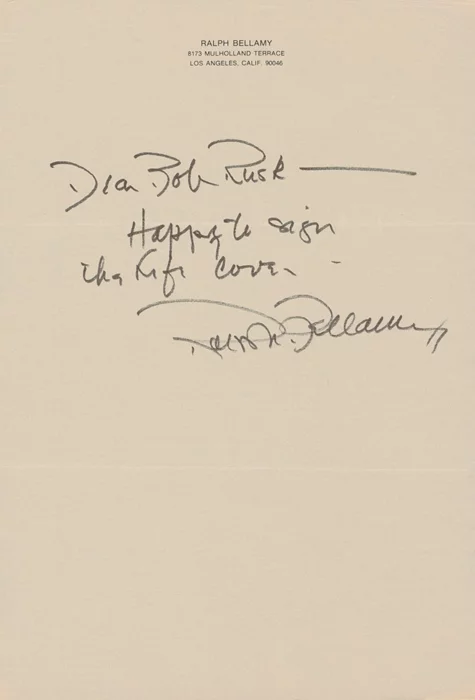 RALPH BELLAMY
8173 MULHOLLAND TERRACE
LOS ANGELES, CALIF. 90046
Dear Bob Rusk —
Happy to sign
the Life cover -
Ralph Bellamy